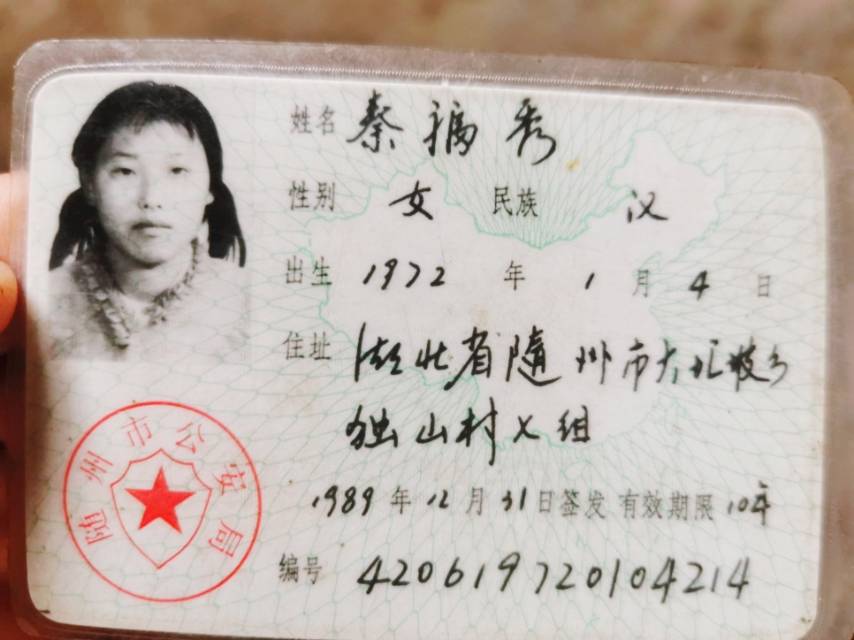 姓名 秦福秀
性别 女 民族 汉
出生 1972 年 1 月 4 日
住址 湖北省隨州市大坡乡
独山村组
1989 年 12 月 31 日签发 有效期限 10年
编号 420619720104214
随州市公安局